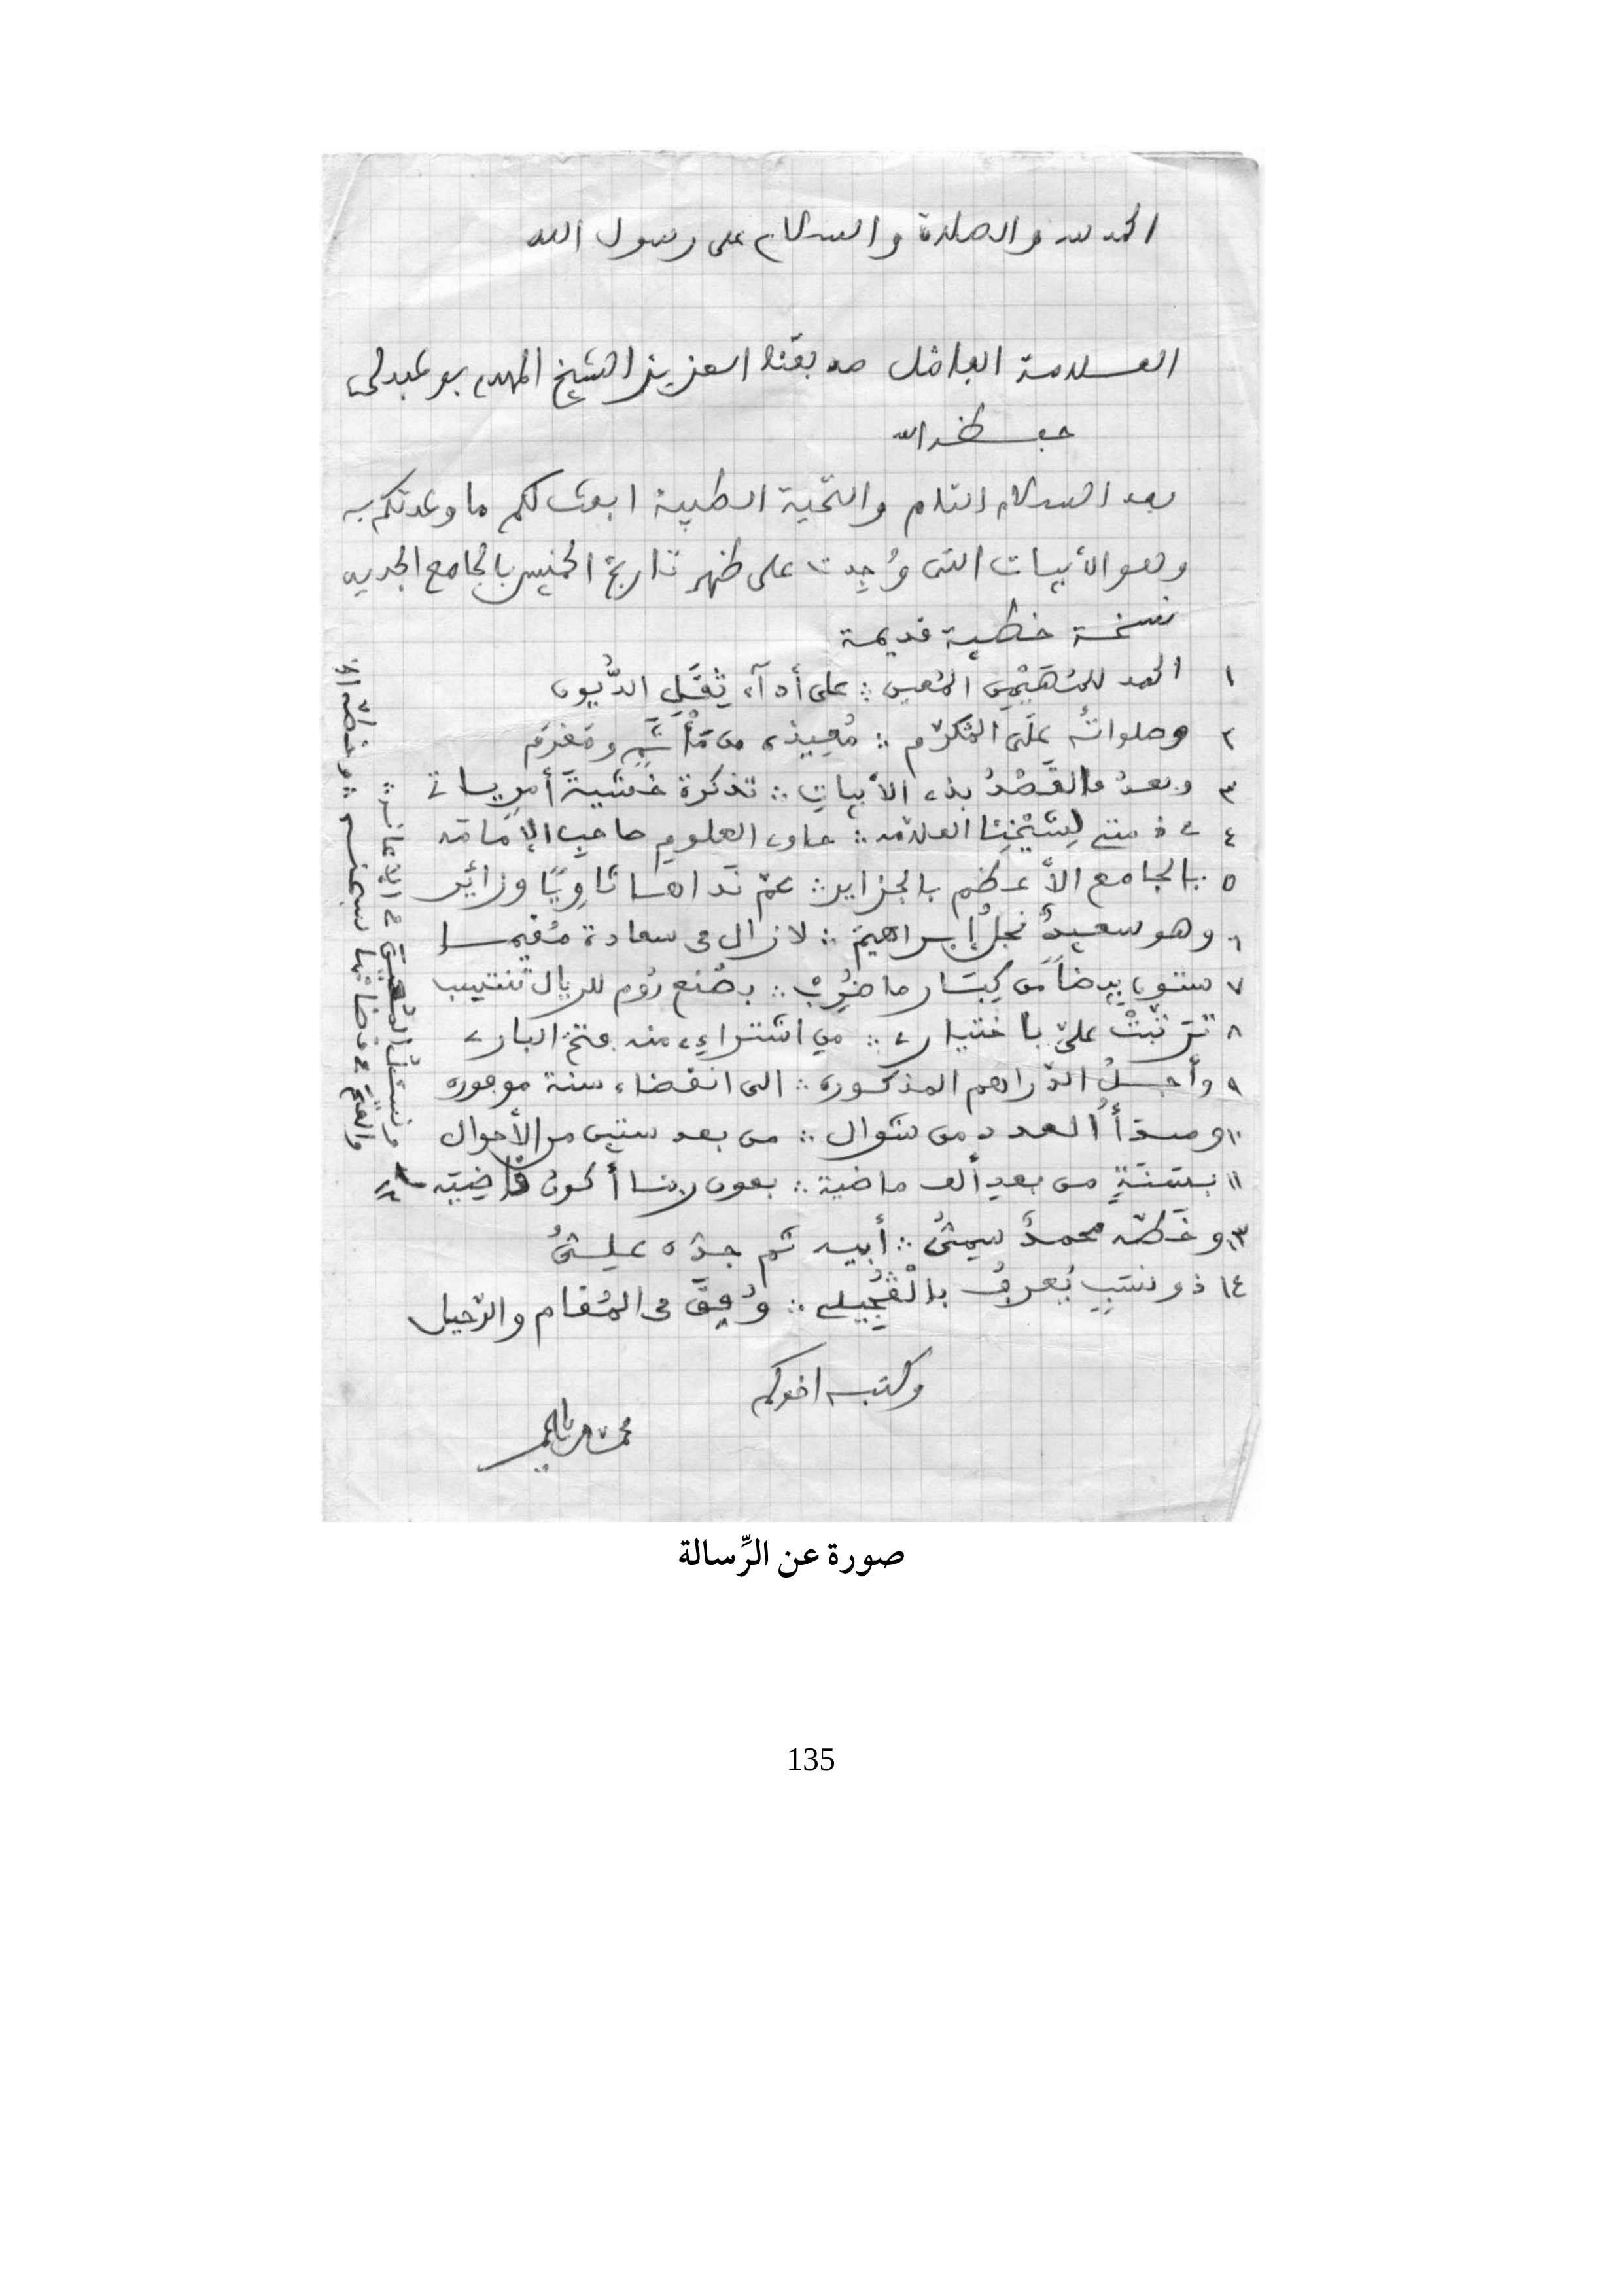 الحمد لله والصلاة والسلام على رسول الله
العلامة الفاضل صديقنا العزيز الشيخ المهدي بوعبدلي
حفظه الله
بعد السلام التام والتحية الطيبة ابعث لكم ما وعدتكم به
وهو الأبيات التي وُجِدت على ظهر تاريخ الخميس بالجامع الجديد
نسخة خطية قديمة
١ الحمد للمُهَيْمِنِ المُعين ∴ على أدآء ثِقَلِ الدُّيون
٢ وصلواتُه على المُكرّم ∴ مُعِيذِي من مَأْثَمٍ ومَغرَم
٣ وبعدُ فالقَصْدُ بذي الأبياتِ ∴ تذكرة خَشيةَ أمرٍ ياتي
٤ في ذمتي لِشَيْخِنا العلّامه ∴ حاوي العلومِ صاحبِ الإمَامَه
٥ بالجامع الأعظم بالجزاير ∴ عمّ نَداها ثاوِيًا وزائر
٦ وهو سعيدٌ نجلُ إبراهيمَ ∴ لازال في سعادة مُقيما
٧ ستون بيضاً من كِبَار ما ضُرِبْ ∴ بصُنع رُوم للريال تنتسب
٨ تَرَتَّبَتْ عليّ باختياري ∴ مِن اشتراءِي منه فتحَ الباري
٩ وأجلُ الدّراهم المذكوره ∴ الى انقضاء سنة موفوره
١٠ ومبدأُ العدد من شوال ∴ من بعد ستين من الأحوال
١١ بستةٍ من بعدِ ألف ماضية ∴ بعون ربنا أكونُ قاضيَه
١٢ ونسئلُ المُعينَ في الإعانه ∴
١٣ وخَطّه محمدٌ سمِيُّ ∴ أبيه ثم جدّه عليُّ
١٤ ذو نسَبٍ يُعرفُ بالْقُجِيلي ∴ وُفِّقَ في المُقام والرّحيل
وكتبه اخوكم
صورة عن الرِّسالة
135